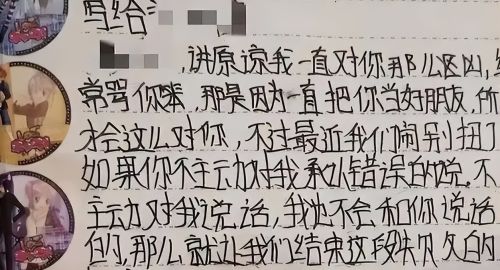 写给:
,请原谅我一直对你那么凶,
常骂你笨,那是因为一直把你当好朋友,所
才会这么对你,不过最近我们闹别扭了
如果你不主动对我承认错误的说,不
主动对我说话,我也不会和你说话
的,那么就让我们结束这段失欠久的